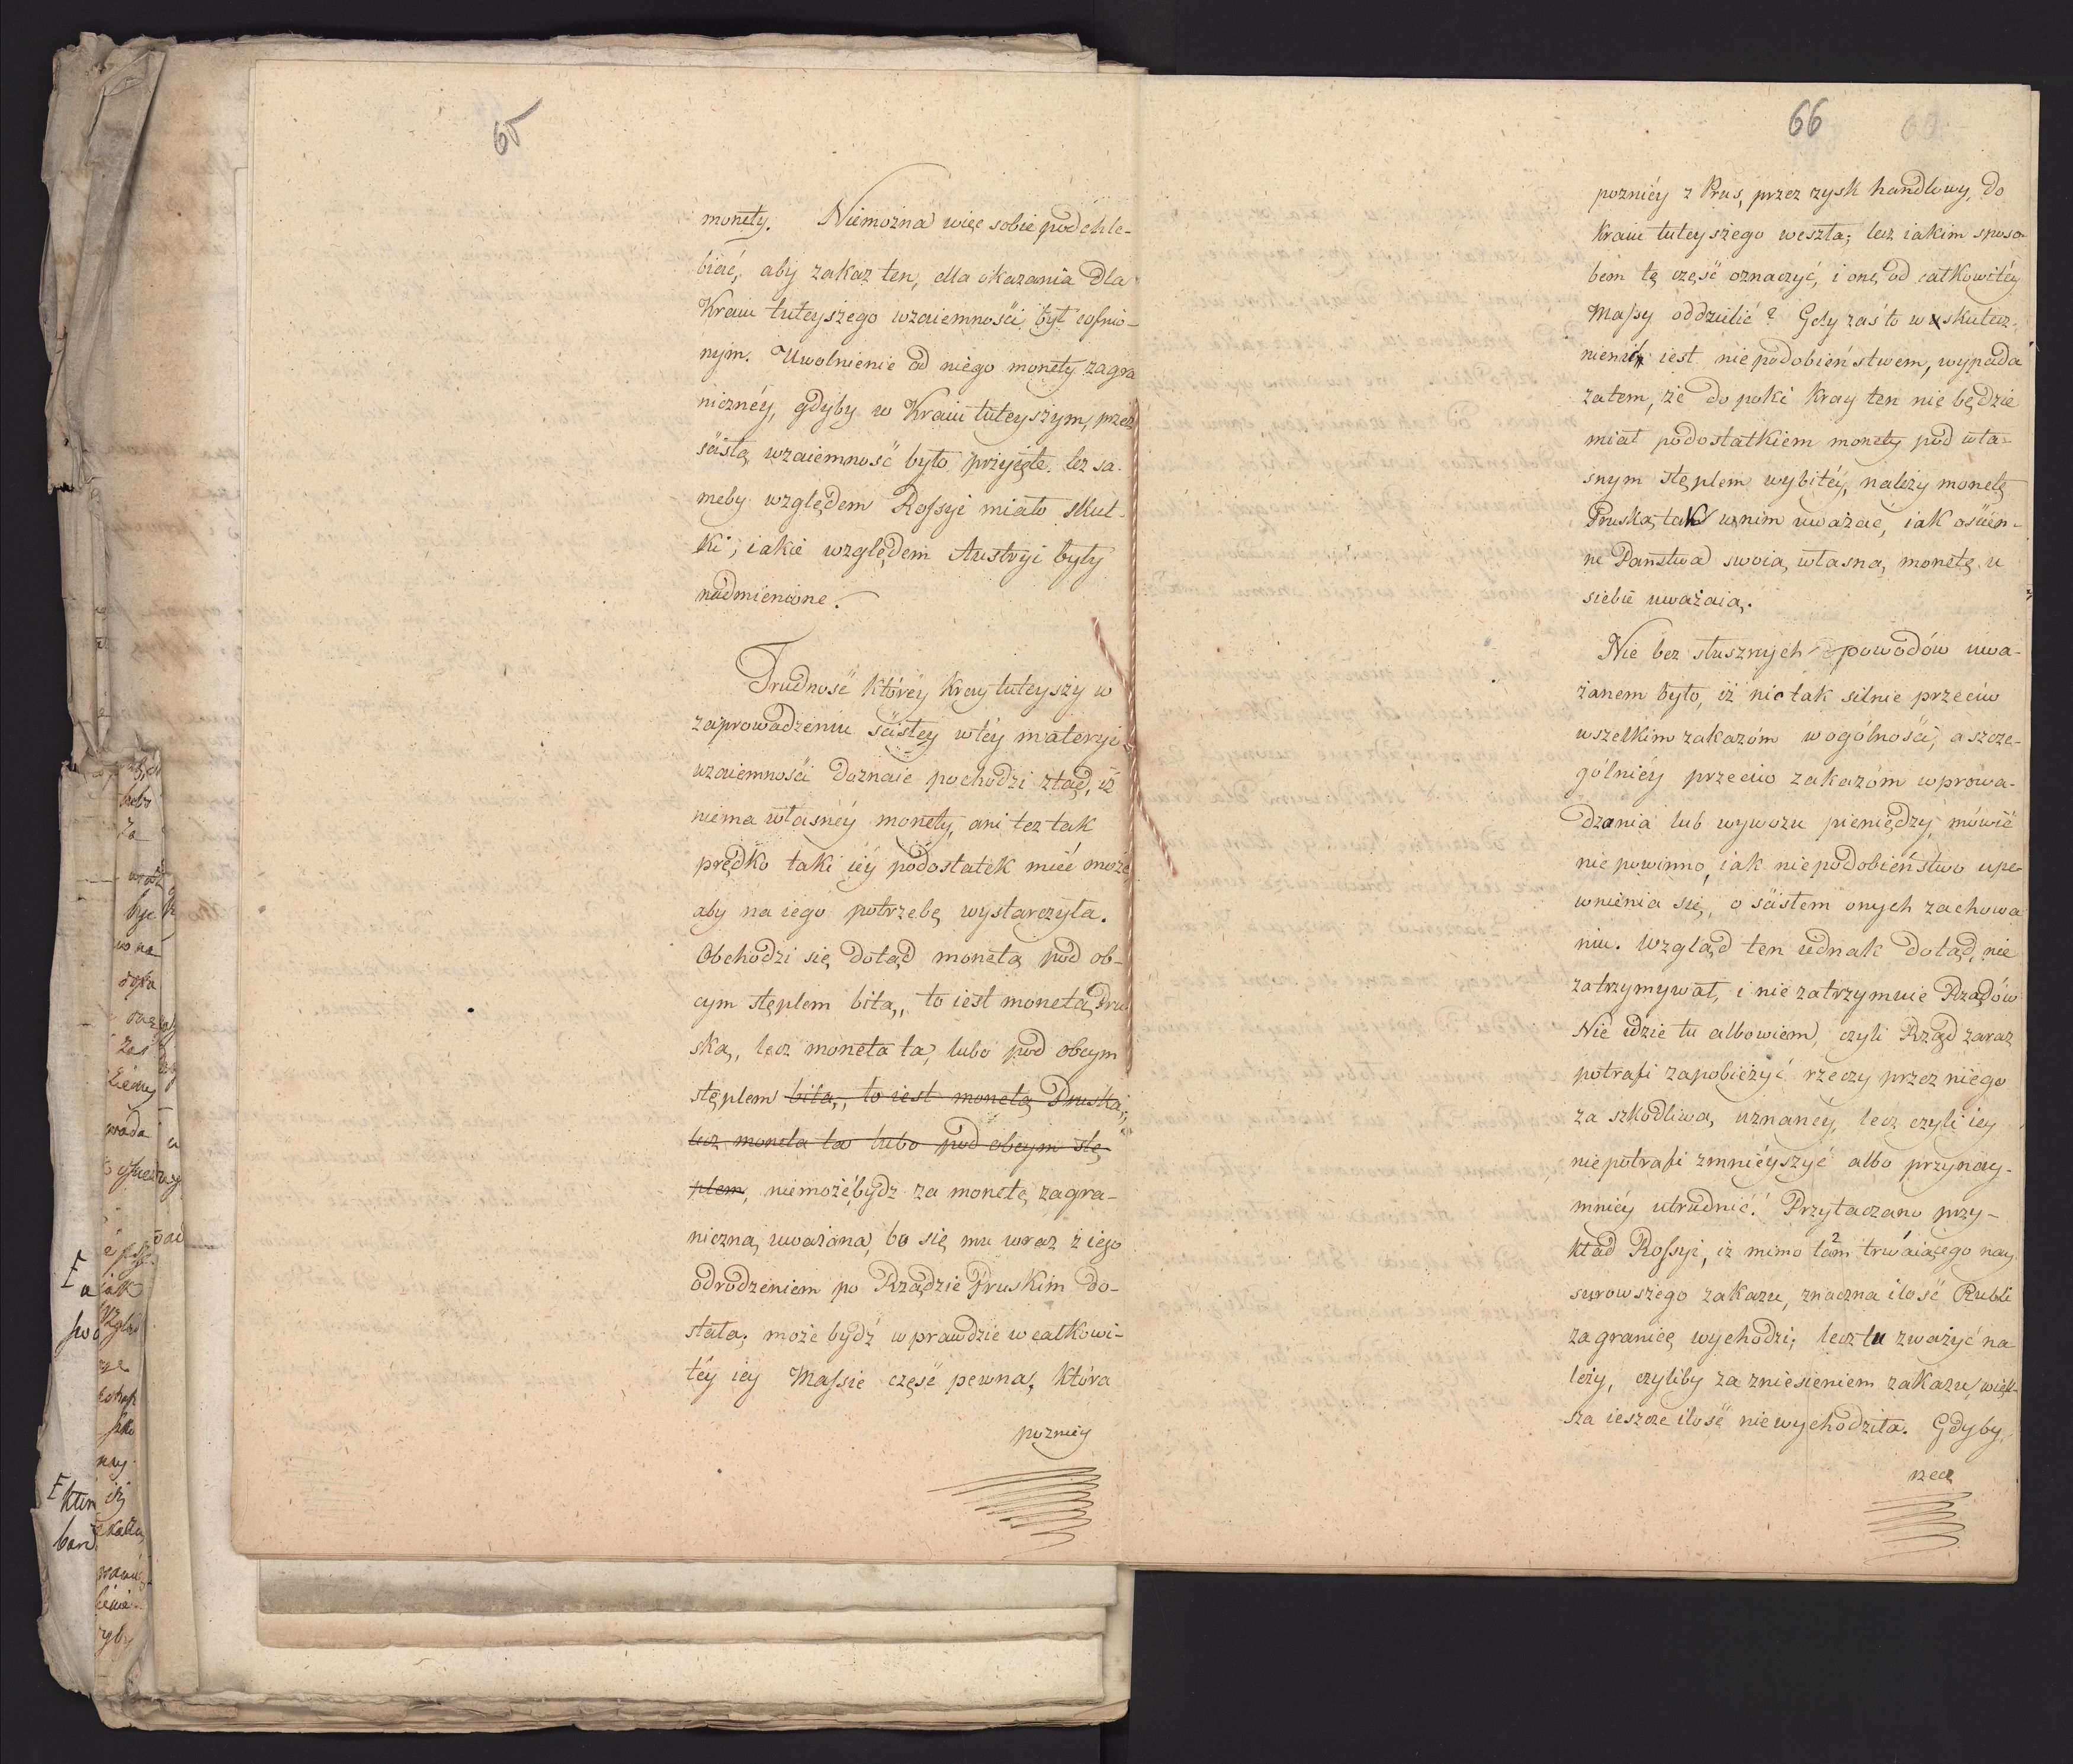 65
monety. Niemożna więc sobie podchle-
biać, aby zakaz ten, dla okazania dla
Kraiu tuteyszego wzaiemności, był cofnio-
nym. Uwolnienie od niego monety zagra
nicznéy, gdyby w Kraiu tuteyszym, przez
ścisłą wzaiemność było przyięte, też sa-
meby względem Rossyi miało skut-
ki, iakie względem Austryi były
nadmienione.
Trudność któréy Kray tuteyszy w
zaprowadzeniu ścisłey w téy materyi
wzaiemności doznaie pochodzi ztąd, iż
niema własnéy monety, ani też tak
prędko taki iéy podostatek mieć może
aby na iego potrzebę wystarczyła.
Obchodzi się dotąd monetą pod ob-
cym stęplem bitą, to iest monetą Pru
ską, lecz moneta ta, lubo pod obcym
stęplem bitą, to iest monetą Pruską,
lecz moneta ta lubo pod obcym stę
plem, niemoże bydz za monetę zagra-
niczną uważaną, bo się mu wraz z iego
odrodzeniem po Rządzie Pruskim do-
stała; może bydź wprawdzie w całkowi-
téy iey Massie część pewna, która
poznièy
66
poznièy z Prus, przez zysk handlowy, do
kraiu tuteyszego weszła; lecz iakim sposo-
bem tę część oznaczyć, i onę od całkowitéy
Massy óddzielić? Gdy zaś to w uskutecz-
nieniu iest niepodobieństwem, wypada
zatem, że do poki Kray ten nie będzie
miał podostatkiem monety pod wła-
snym stęplem wybitéy, należy monetę
Pruską tak w nim uważać, iak ościen-
ne Państwa swoią własną monetę u
siebie uważaią.
Nie bez słusznych powodów uwa-
żanem było, iż nic tak silnie przeciw
wszelkim zakazóm w ogólności, a szcze-
gólniéy przeciw zakazóm wprowa-
dzania lub wywozu pieniędzy, mówić
nie powinno, iak niepodobieństwo upe-
wnienia się, o ścisłem onych zachowa
niu. Wzgląd ten iednak dotąd, nie
zatrzymywał, i nie zatrzymuie Rządów
Nie idzie tu albowiem, czyli Rząd zaraz
potrafi zapobieżyć rzeczy przez niego
za szkodliwą uznanéy, lecz czyli iey
niepotrafi zmniéyszyć albo przynay-
mniéy utrudnić. Przytaczano przy-
kład Rossyi, iż mimo tam trwaiącego nay
surowszego zakazu, znaczna ilość Rubli
za granicę wychodzi; lecz tu zważyć na
leży, czyliby za zniesieniem zakazu, więk-
sza ieszcze ilość niewychodziła. Gdyby
rzecz